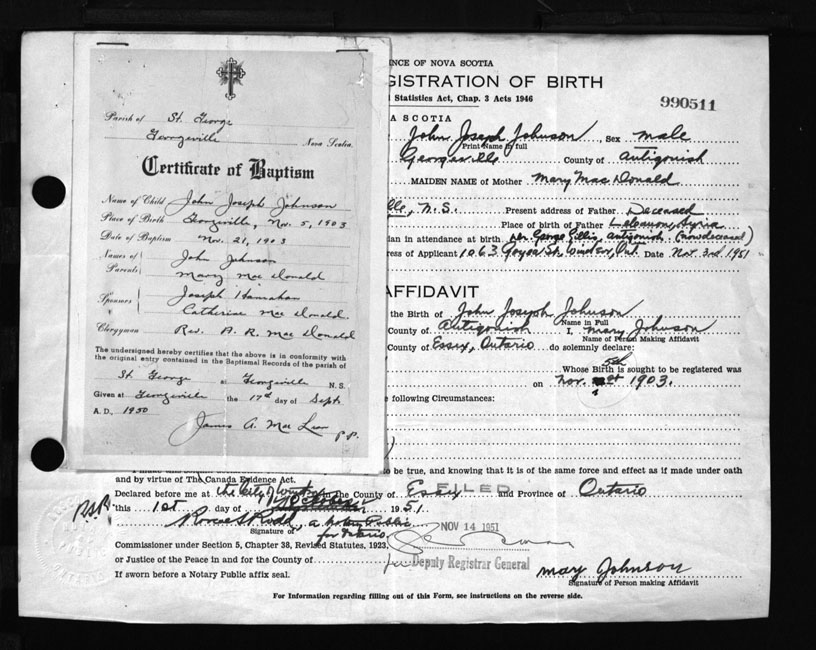 Parish of St. George
Georgeville Nova Scotia
Certificate of Baptism
Name of Child John Joseph Johnson
Place of Birth Georgeville, Nov. 5, 1903
Date of Baptism Nov. 21, 1903
Names of Parents John Johnson
Mary Mac Donald
Sponsors Joseph Hanrahan
Catherine Mac Donald
Clergyman Rev. A. R. Mac Donald
The undersigned hereby certifies that the above is in conformity with
the original entry contained in the Baptismal Records of the parish of
St. George at Georgeville N. S.
Given at Georgeville the 17th day of Sept.
A. D., 1950
James A. Mac Lean P.P.
NCE OF NOVA SCOTIA
GISTRATION OF BIRTH
Statistics Act, Chap. 3 Acts 1946
990511
A SCOTIA
John Joseph Johnson, Sex male
Print Name in full
Georgeville County of Antigonish
MAIDEN NAME of Mother Mary MacDonald
lle, N.S. Present address of Father Deceased
Place of birth of Father Lebanon, Syria
ian in attendance at birth Dr. George Ellis, Antigonish (now deceased)
ress of Applicant 1063 Goyeau St., Windsor, Ont. Date Nov. 3rd 1951
AFFIDAVIT
the Birth of John Joseph Johnson
Name in Full
County of Antigonish I, Mary Johnson
Name of Person Making Affidavit
County of Essex, Ontario do solemnly declare:
5th
Whose Birth is sought to be registered was
on Nov. 1903.
e following Circumstances:
to be true, and knowing that it is of the same force and effect as if made under oath
and by virtue of The Canada Evidence Act.
Declared before me at the City of Windsor in the County of Essex and Province of Ontario
FILED
this 1st day of October 1951.
a Notary Public
for Ontario
Signature of
NOV 14 1951
Commissioner under Section 5, Chapter 38, Revised Statutes, 1923,
or Justice of the Peace in and for the County of
Deputy Registrar General
If sworn before a Notary Public affix seal.
Mary Johnson
Signature of Person making Affidavit
For Information regarding filling out of this Form, see instructions on the reverse side.